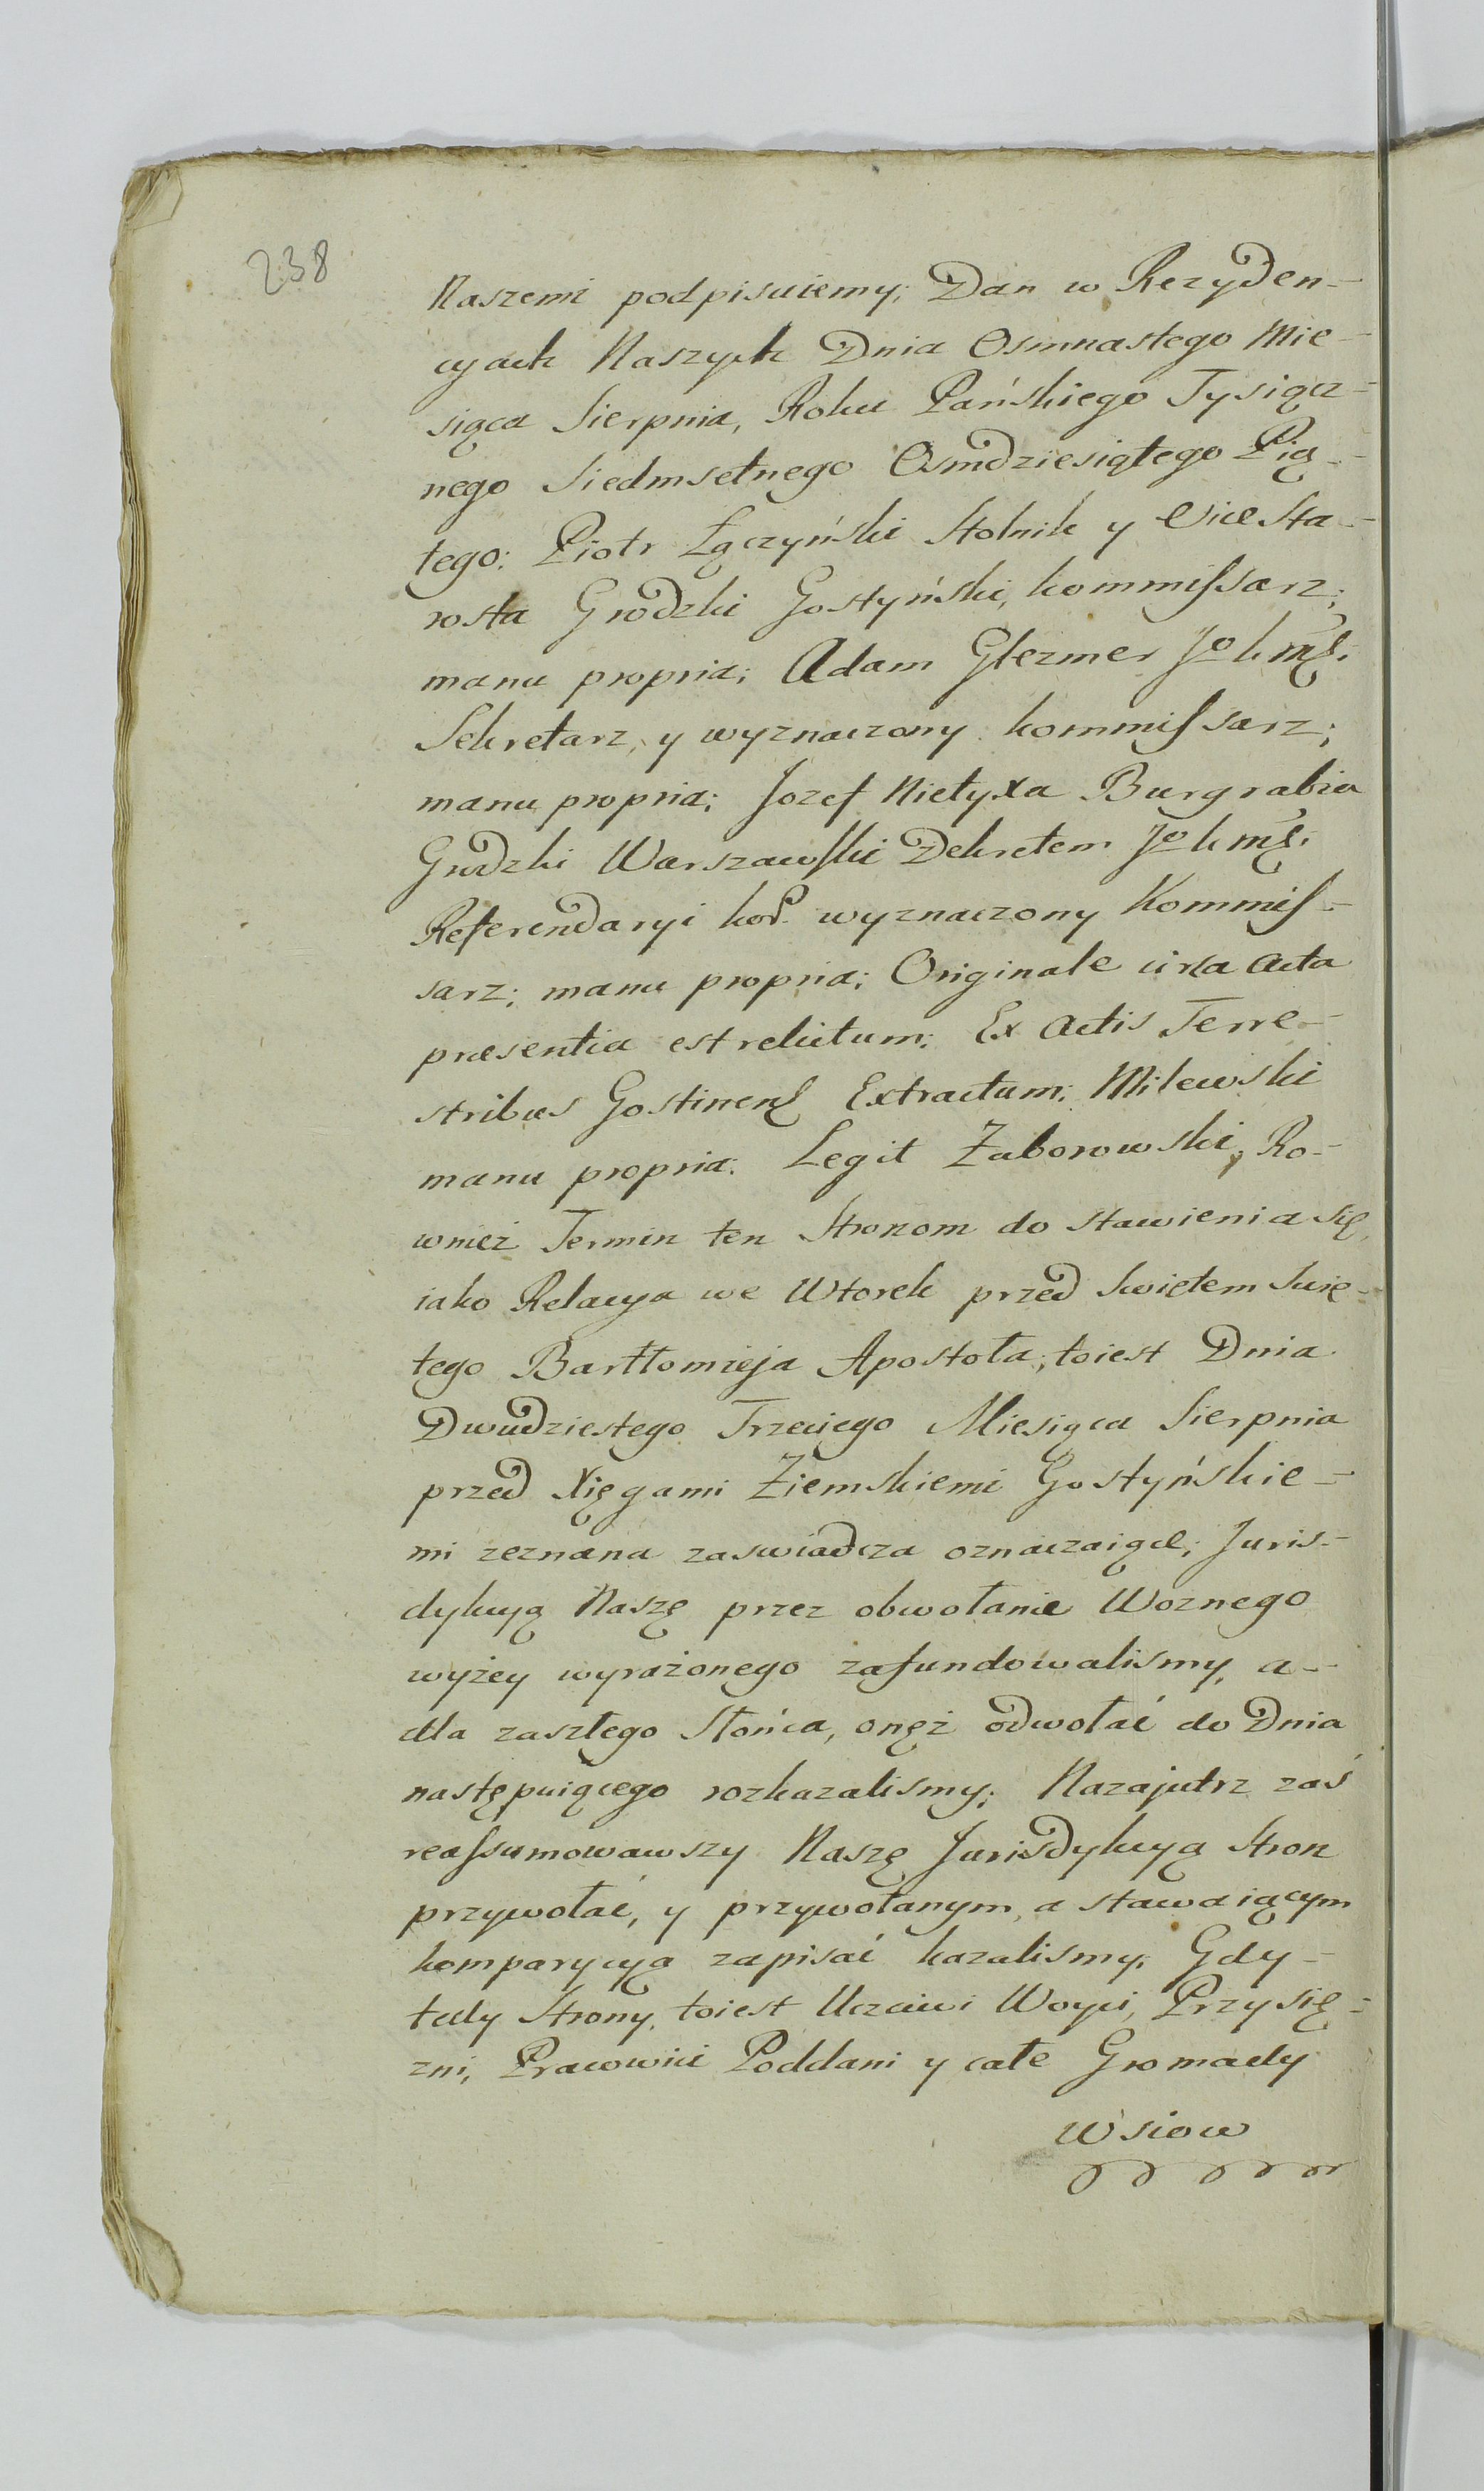 238
Naszemi podpisuiemy; Dan w Rezyden-
cyach Naszych Dnia Osmnastego Mie-
siąca Sierpnia, Roku Pańskiego Tysiącz-
nego Siedmsetnego Osmdziesiątego Pią-
tego: Piotr Łączyński Stolnik y Vice Sta-
rosta Grodzki Gostyński, kommissarz;
manu propria; Adam Glezmer Jo k mś.
Sekretarz, y wyznaczony kommissarz;
manu propria; Jozef Nietyxa Burgrabia
Grodzki Warszawski Dekretem Jo k mś.
Referendaryi kor. wyznaczony Kommis-
sarz; manu propria; Originale circa Acta
præsentia est relictum; Ex Actis Terre-
stribus Gostinens Extractum; Milewski
manu propria. Legit Zaborowski, Ro-
wnież Termin ten Stronom do stawienia się,
iako Relacya we Wtorek przed Swiętem Swię-
tego Bartłomieja Apostoła, toiest Dnia
Dwudziestego Trzeciego Miesiąca Sierpnia
przed Xięgami Ziemskiemi Gostyńskie-
mi zeznana zaswiadcza oznaczaiące; Juris-
dykcyą Naszę przez obwołanie Woznego
wyżey wyrażonego zafundowalismy, a-
dla zaszłego Słońca, onęż odwołać do Dnia
następuiącego rozkazalismy; Nazajutrz zaś
reassumowawszy Naszę Jurisdykcyą Stron
przywołać, y przywołanym, a stawaiącym
komparycyą zapisać kazalismy; Gdy-
tedy Strony, toiest Uczciwi Woyci, Przysię-
zni, Pracowici Poddani y całe Gromady
Wsiow